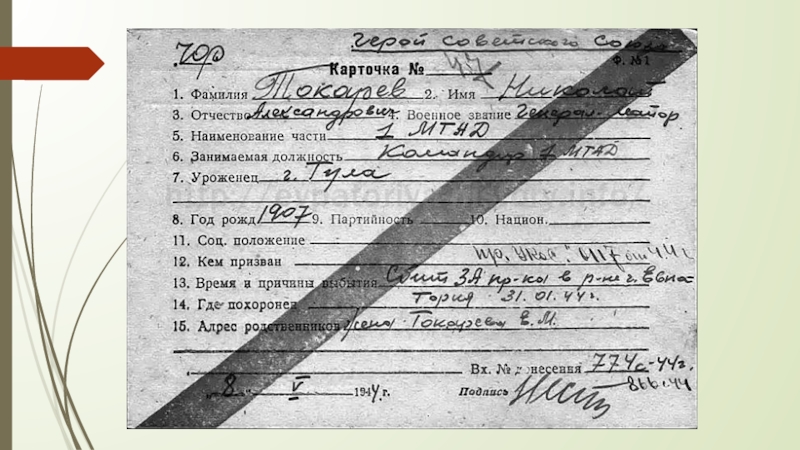 ЧФ Герой Советского Союза
Карточка № 47 Ф. №1
1. Фамилия Токарев 2. Имя Николай
3. Отчество Александрович 4. Военное звание Генерал-майор
5. Наименование части 1 МТАД
6. Занимаемая должность Командир 1 МТАД
7. Уроженец г. Тула
8. Год рожд 1907 9. Партийность 10. Национ.
11. Соц. положение
12. Кем призван пр.
13. Время и причины выбытия Сбит ЗА пр-ка в р-не г. Евпа-
14. Где похоронен тория 31.01.44г.
15. Адрес родственников Жена Токарева В.М.
Вх. № донесения 774с-44г.
866-44
„8" V 1944 г. Подпись